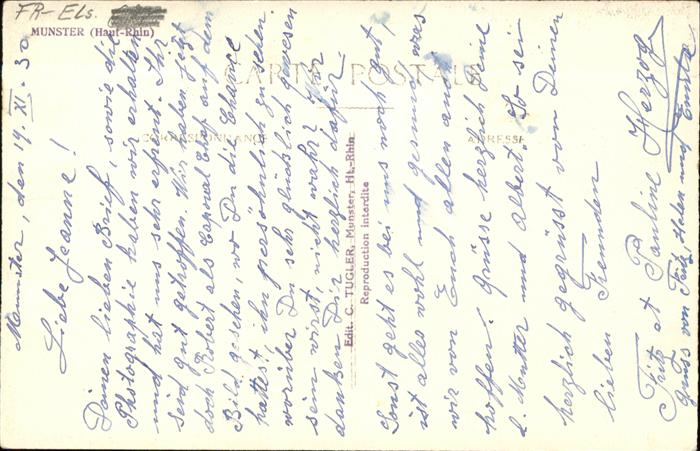 FR-Els.
MUNSTER (Haut-Rhin)
CARTE POSTALE
CORRESPONDANCE
ADRESSE
Edit. C. TUGLER, Munster, Ht.-Rhin
Reproduction interdite
Munster, den 19. XI. 30
Liebe Jeanne!
Deinen lieben Brief, sowie die
Photographie haben wir erhalten
und hat uns sehr erfreut. Ihr
seid gut getroffen. Wir haben jetzt
doch Robert als Caporal Chef auf dem
Bild gesehen, wo Du die Chance
hattest, ihn persönlich zu sehen.
worüber Du sehr glücklich gewesen
sein wirst, nicht wahr? Wir
danken Dir herzlich dafür.
Sonst geht es bei uns noch gut,
ist alles wohl und gesund, was
wir von Euch allen auch
hoffen. Grüsse herzlich Deine
l. Mutter und Albert. So sei
herzlich gegrüsst von Deinen
lieben Fremden
Fritz et Pauline Herzog
Gruss von Fritz, Helen und